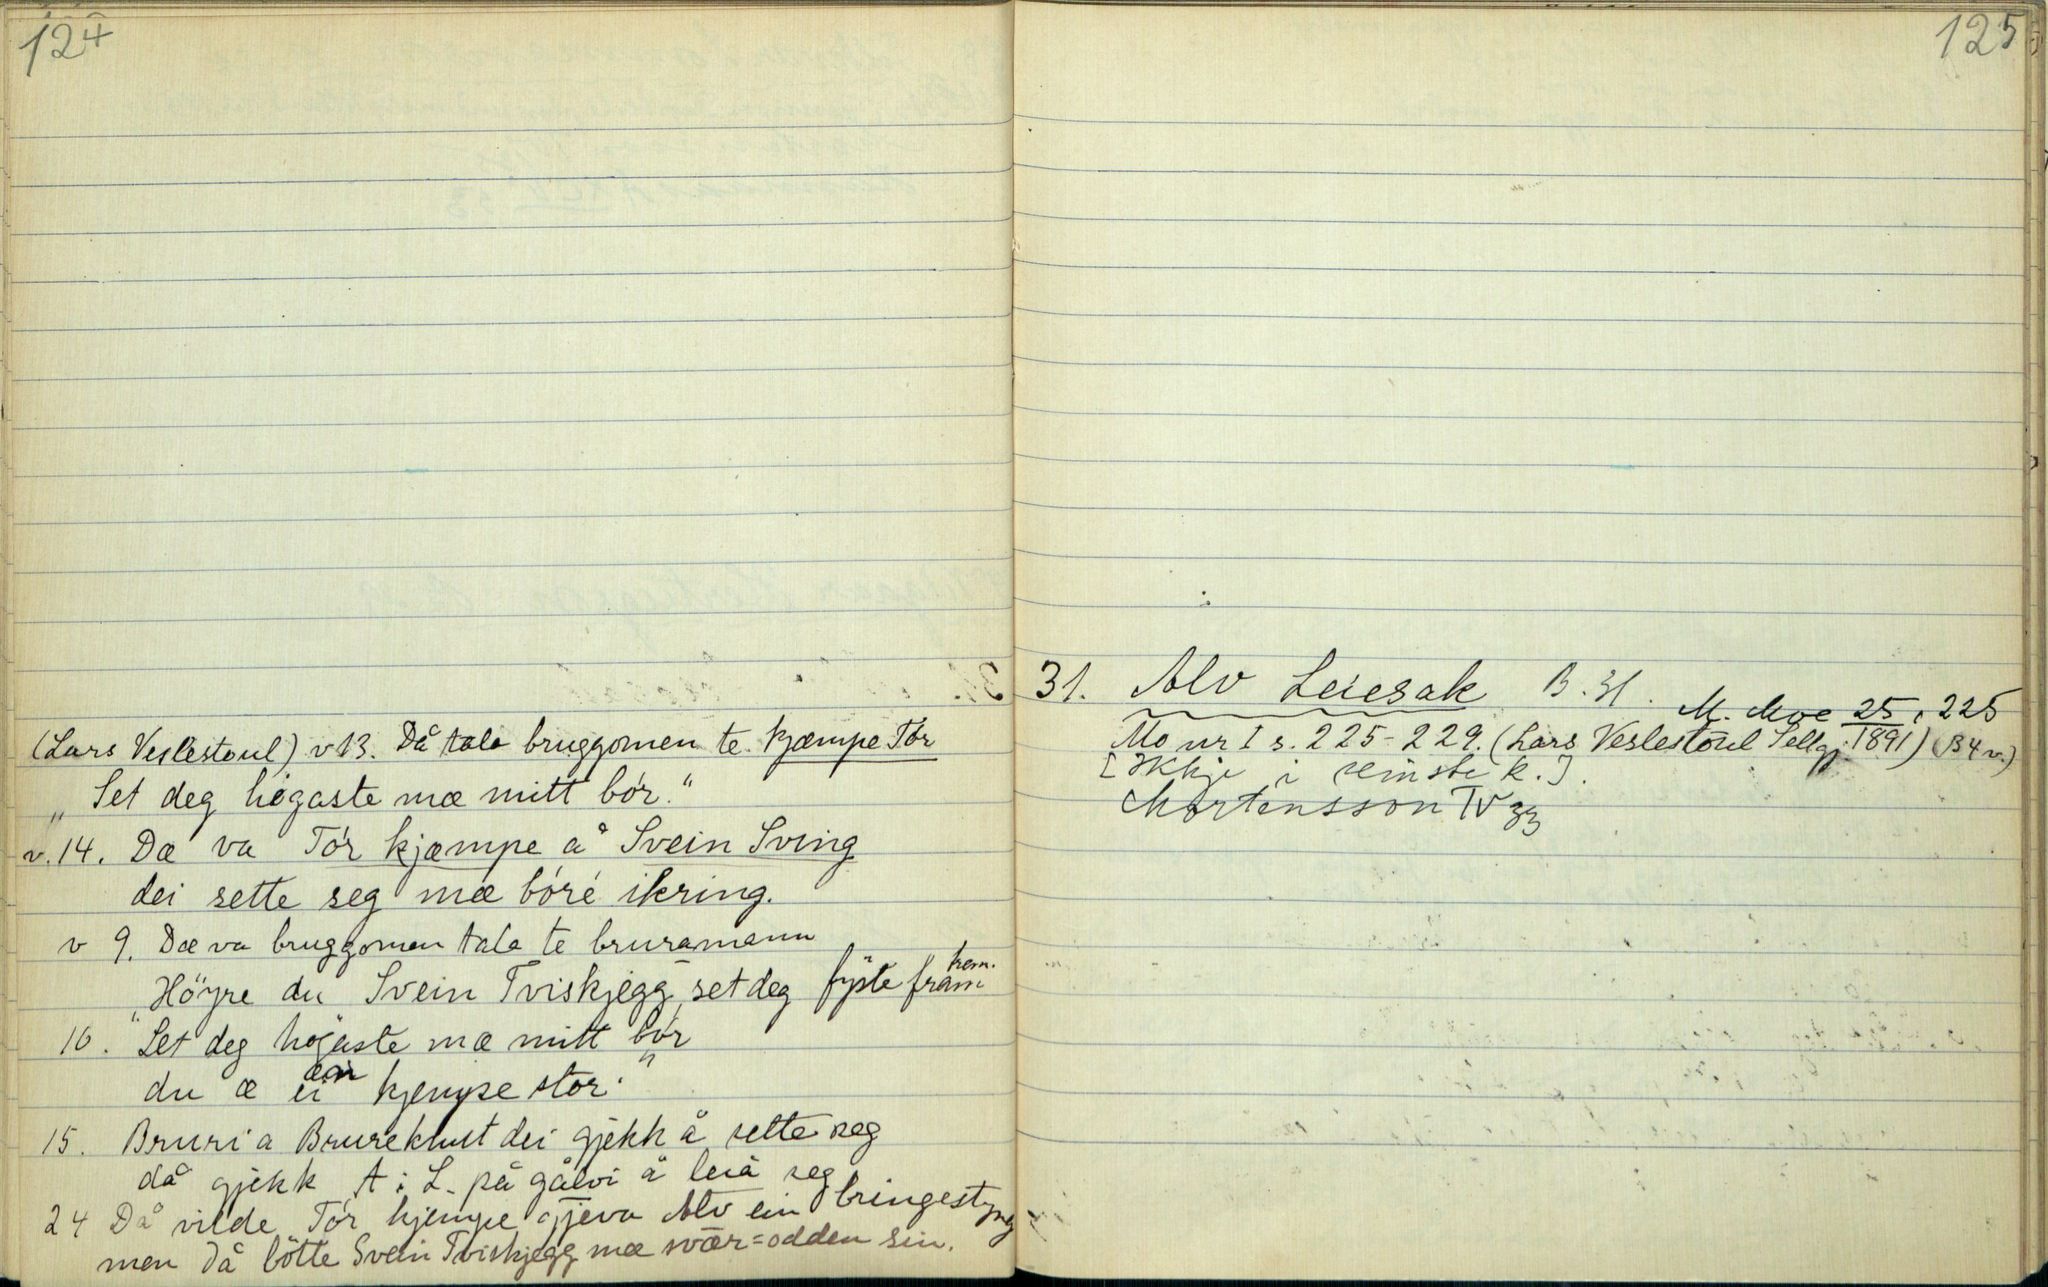 124
(Lars Veslestoul) v 13. Då tala bruggomen te kjæmpe Tór
„Set deg högaste mæ mitt bór.“
v. 14. Dæ va Tór kjæmpe å Svein Sving
dei sette seg mæ bóré ikring.
v 9. Dæ va bruggomen tala te bruramann
„Höyre du Svein Tviskjegg, set deg fyste fram
hem.
10. Set deg högaste mæ mitt bór
du æ ein kjempe stor.“
15. Bruri a Brureklust dei gjekk å sette seg
då gjekk A i L. på gålvi å leia seg
24 Då vilde Tór kjempe gjeva Alv ein bringestyng
men då bötte Svein Tviskjegg mæ svær=odden sin.
125
31. Alv Leiesak B. 31.
M. Moe 25, 225
Mo nr I s. 225-229. (Lars Veslestoul Sellgj. 1891) (B 4 v.)
[Ikkje i reinste k.].
Mortensson IV 33